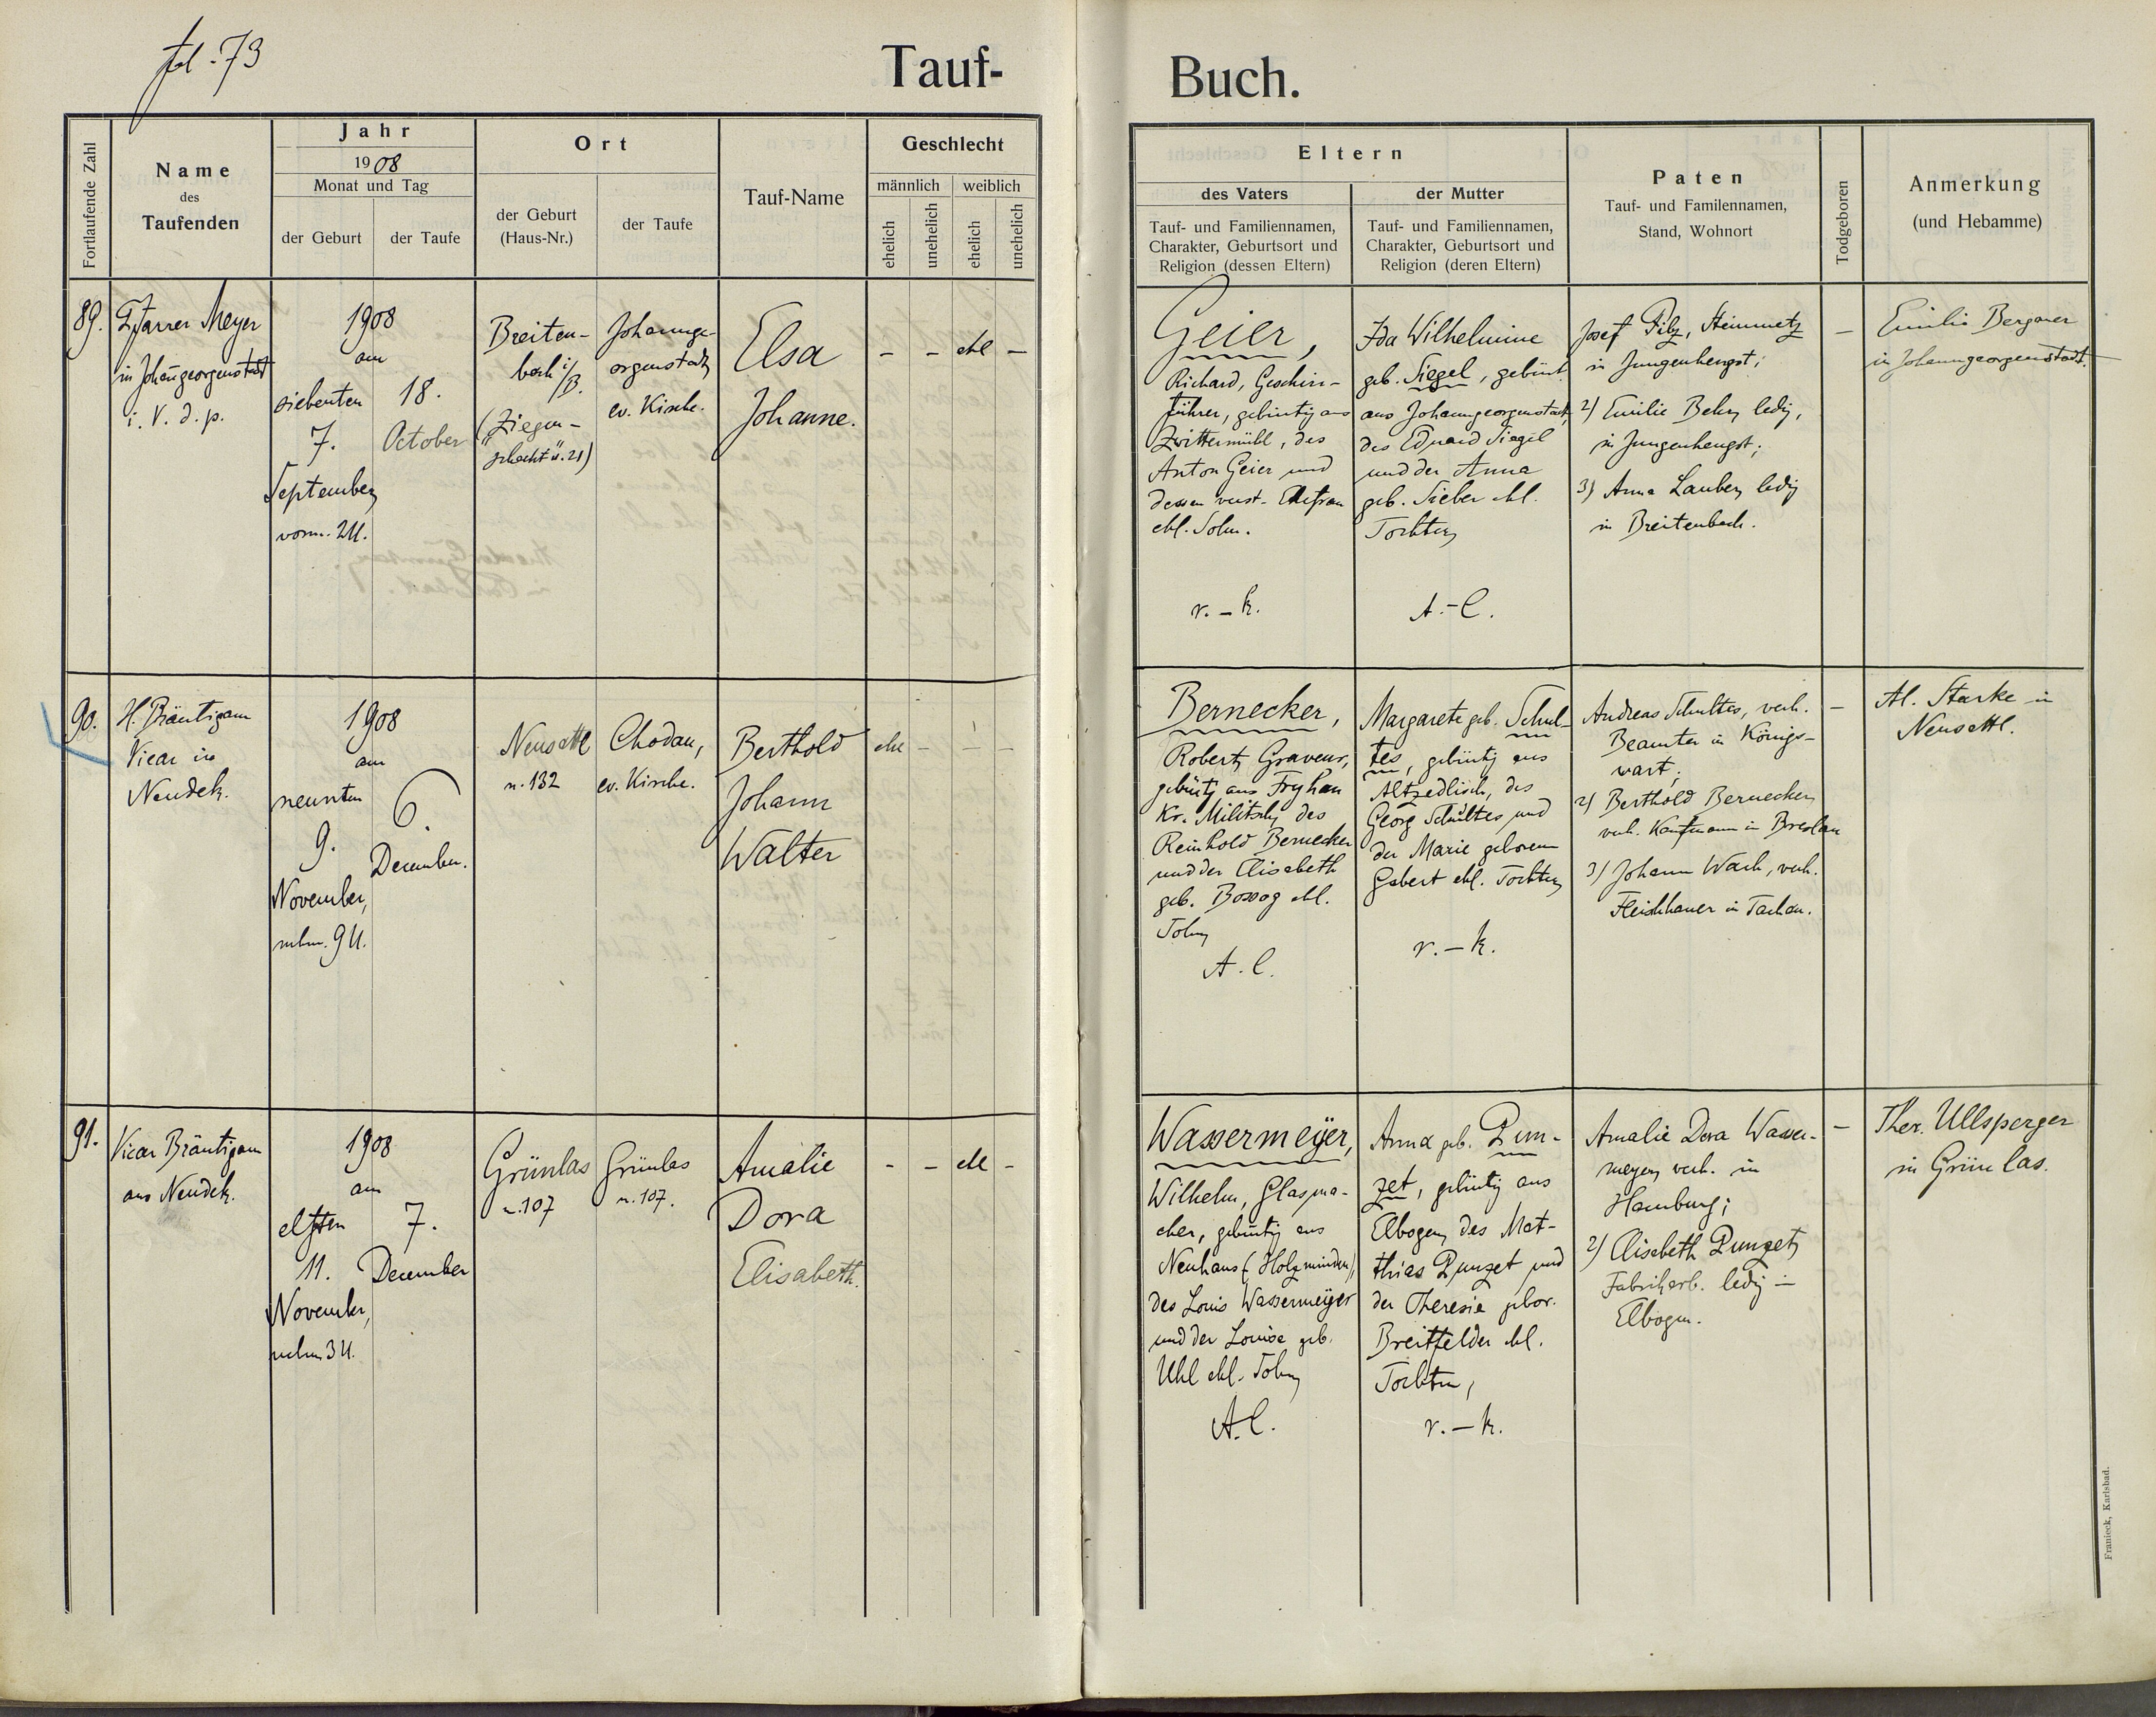 fol. 73
Tauf-
Buch.
Fortlaufende Zahl
Name
des
Taufenden
Jahr
1908
Monat und Tag
der Geburt
der Taufe
Ort
der Geburt
(Haus-Nr.)
der Taufe
Tauf-Name
Geschlecht
männlich
weiblich
ehelich
unehelich
ehelich
unehelich
Eltern
des Vaters
Tauf- und Familiennamen,
Charakter, Geburtsort und
Religion (dessen Eltern)
der Mutter
Tauf- und Familiennamen,
Charakter, Geburtsort und
Religion (deren Eltern)
Paten
Tauf- und Familennamen,
Stand, Wohnort
Todgeboren
Anmerkung
(und Hebamme)
89.
Pfarrer Meyer
in Johanngeorgenstadt
i. V. d. p.
1908
am
siebenten
7.
September,
vorm. 2 U.
18.
October
Breiten-
bach i/
B.
(Ziegen-
schacht n. 21)
Johannge-
orgenstadt,
ev. Kirche.
Elsa
Johanne.
- - ehl -
Geier,
Richard, Geschirr-
führer, gebürtig aus
Zwittermühl, des
Anton Geier und
dessen verst. Ehefrau
ehl. Sohn.
r. - k.
Ida Wilhelmine
geb. Siegel, gebürt.
aus Johanngeorgenstadt,
des Eduard Siegel
und der Anna
geb. Sieber ehl.
Tochter,
A.-C.
Josef Pilz, Steinmetz
in Jungenhengst;
2) Emilie Behr, ledig,
in Jungenhengst;
3) Anna Lauber, ledig
in Breitenbach.
-
Emilie
in Johanngeorgenstadt.
90.
H. Bräutigam
Vicar in
Neudek.
1908
am
neunten
9.
November,
nchm. 9 U.
6.
December.
Neusattl
n. 132
Chodau,
ev. Kirche.
Berthold
Johann
Walter
ehl - -
Bernecker,
Robert, Graveur,
gebürtig aus Fryhan
Kr. Militsch, des
Reinhold Bernecker
und der Elisabeth
geb. Bossog ehl.
Sohn,
A. C.
Margarete geb. Schul-
tes, gebürtig aus
Altzedlisch, des
Georg Schultes, und
der Marie geborenen
Gebert ehl. Tochter,
r. - k.
Andreas Schultes, verh.
Beamter in Königs-
wart;
2) Berthold Bernecker,
verh. Kaufmann in Breslau
3) Johann Wach, verh.
Fleischhauer in Tachau.
-
Al. Starke in
Neusattl.
91.
Vicar Bräutigam
aus Neudek.
1908
am
elften
11.
November,
nchm 3 U.
7.
December
Grünlas
n. 107
Grünlas
n. 107.
Amalie
Dora
Elisabeth.
- - ehl -
Wassermeÿer,
Wilhelm, Glasma-
cher, gebürtig aus
Neuhaus (Holzminden),
des Louis Wassermeÿer
und der Louise geb.
Uhl ehl. Sohn,
A. C.
Anna geb. Pun-
zet, gebürtig aus
Elbogen, des Mat-
thias Punzet und
der Theresie gebor.
Breitfelder ehl.
Tochter,
r. - k.
Amalie Dora Wasser-
meyer, verh. in
Hamburg;
2) Elisabeth Punzet,
Fabriksarb. ledig in
Elbogen.
-
Ther. Ullsperger
in Grünlas.
Franieck, Karlsbad.